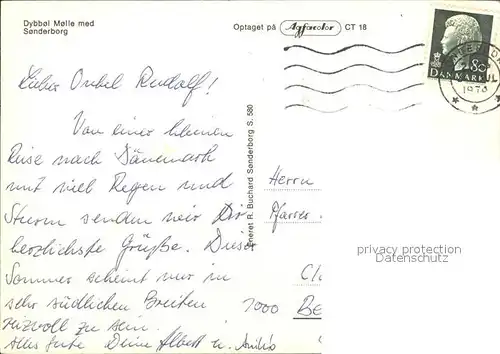 Dybbøl Mølle med
Sønderborg
Optaget på Agfacolor CT 18
DANMARK
80
1974
Lieber Onkel Rudolf!
Von einer kleinen
Reise nach Dänemark
mit viel Regen und
Sturm senden wir Dir
herzlichste Grüße. Dieser
Sommer scheint nur in
sehr südlichen Breiten
reizvoll zu sein.
Alles Gute Deine Albert u.
Eneret R. Buchard Sønderborg S. 580
Herrn
Pfarrer
1000 BE
privacy protection
Datenschutz